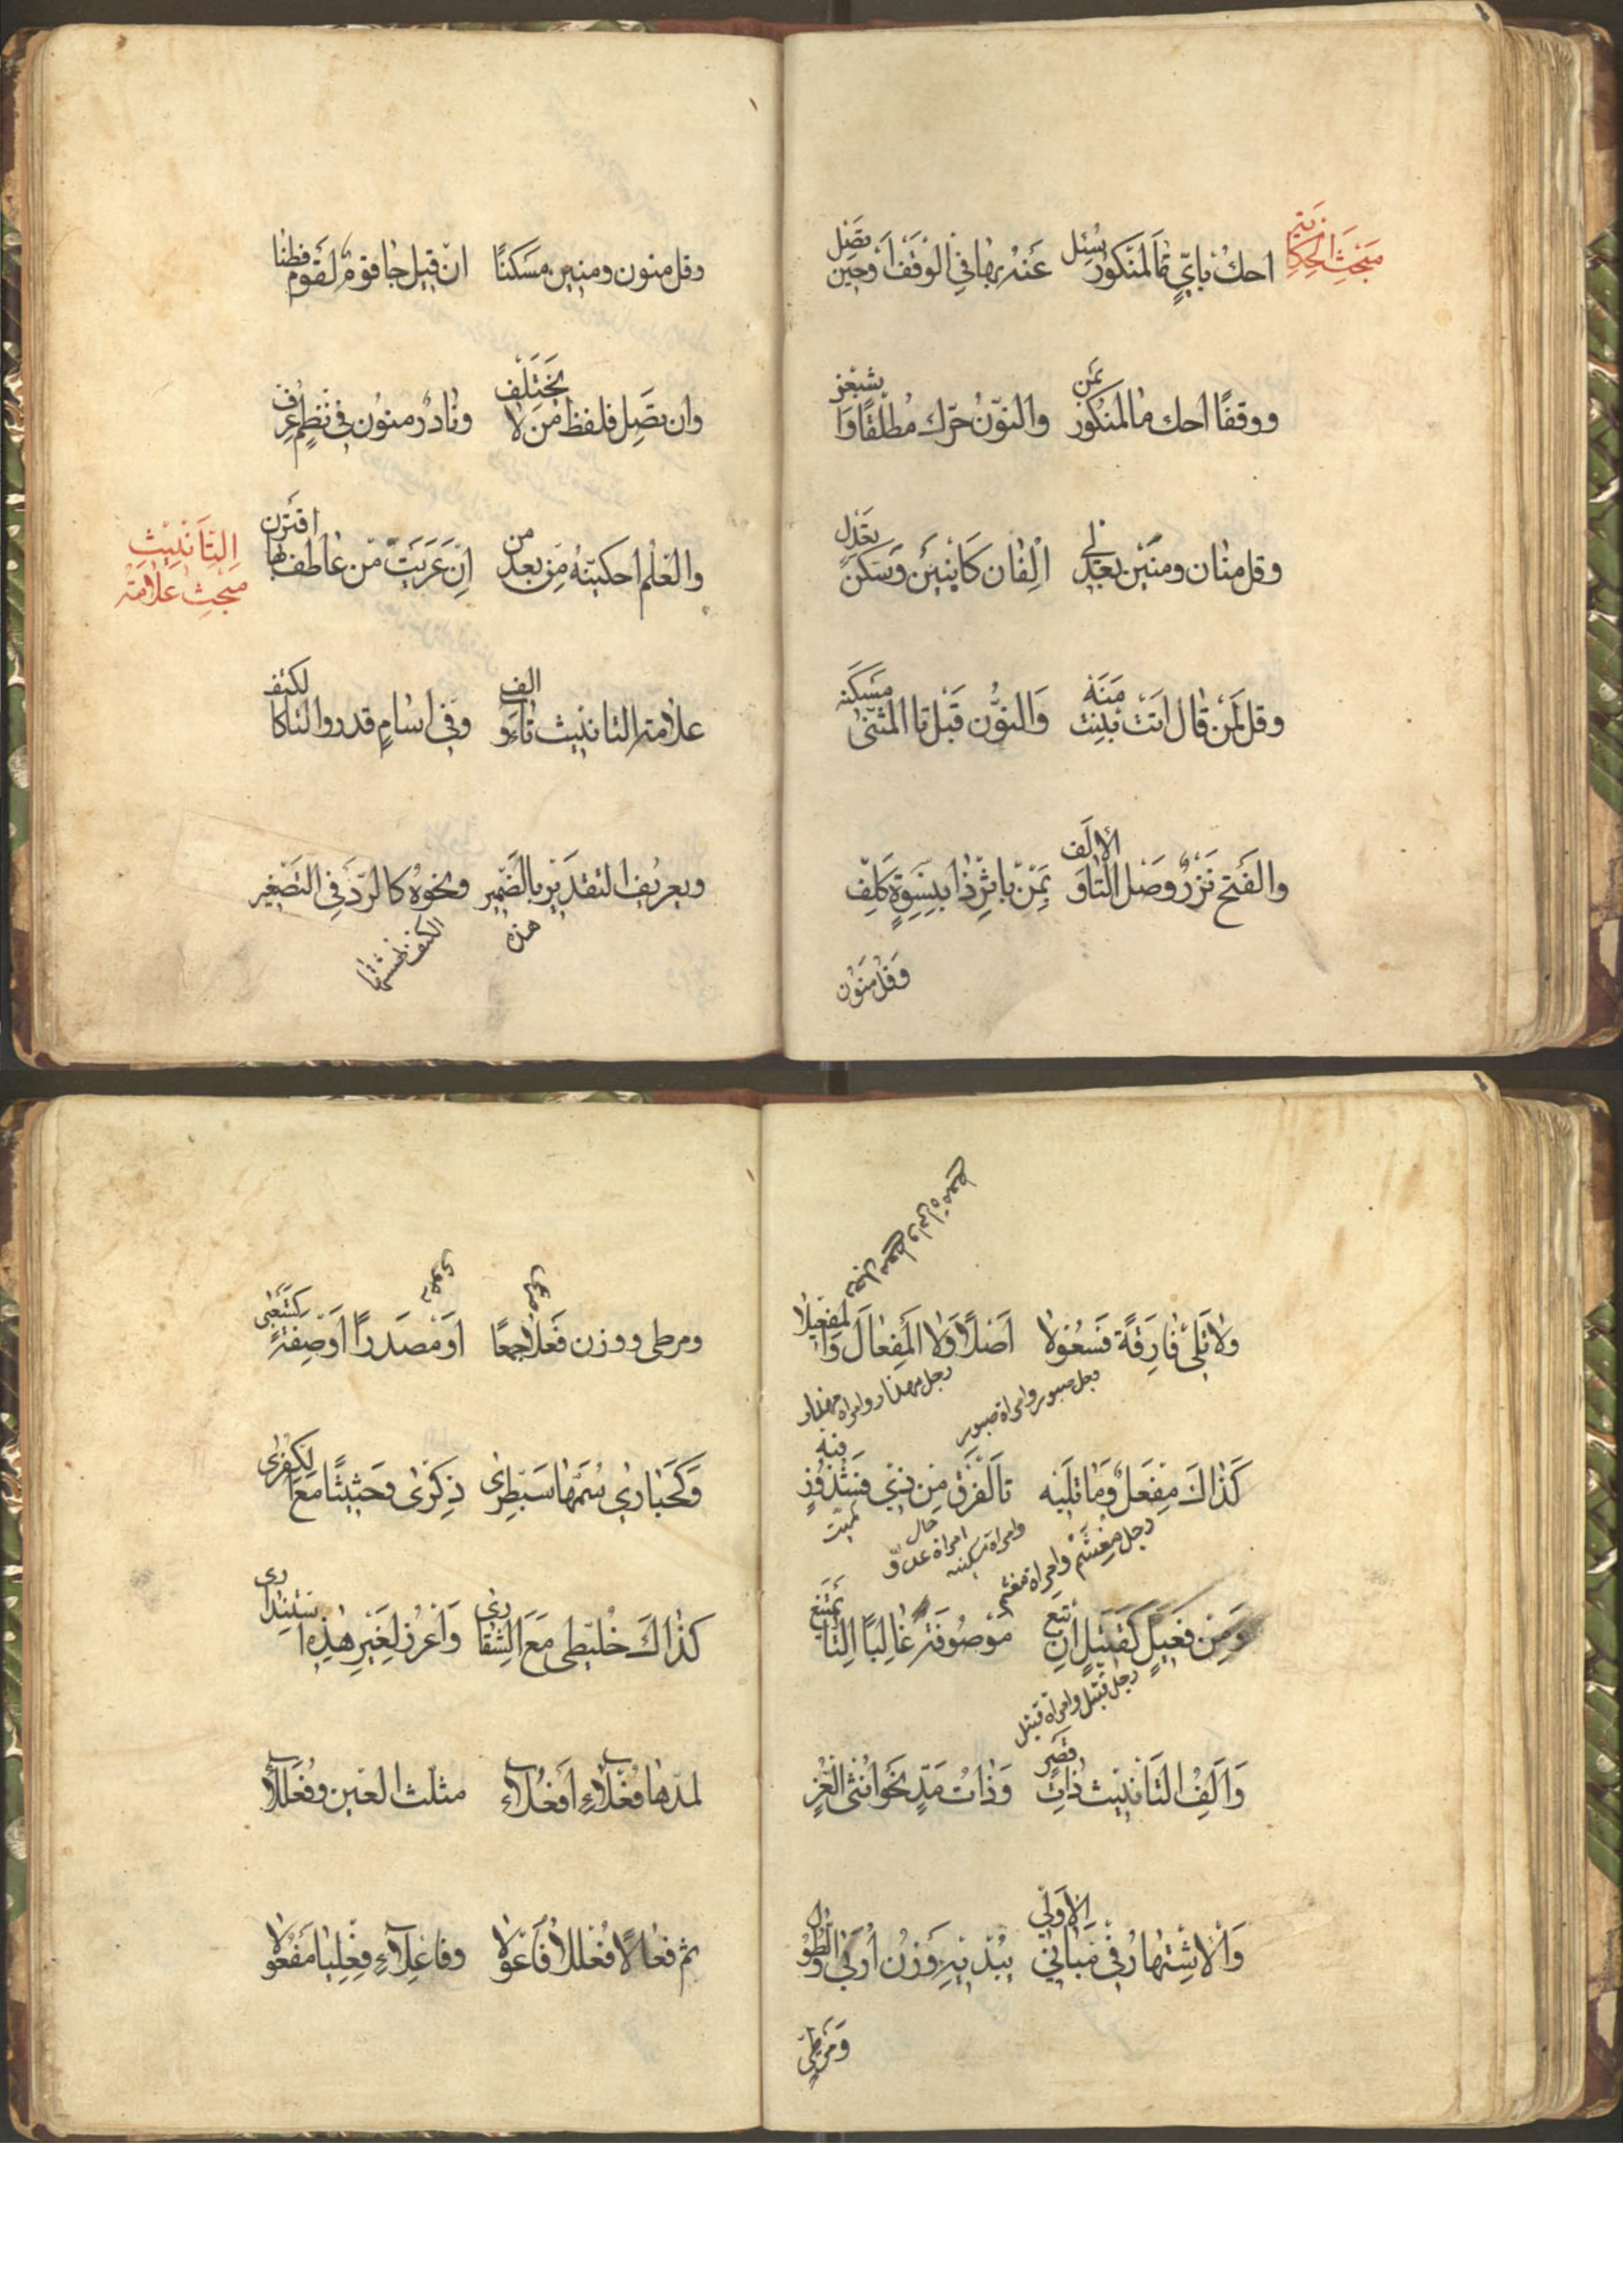 مَبْحَثُ الْحِكَايَةِ
احك بايٍّ مَا لمنكور سُئِل عَنْهُ بها في الوقف اَوْ حين تصل
ووقفًا احك ما لمنكور بمَن والنّونُ حرّك مُطلقًا وَاشبعن
وقل منان ومنين بعد لى الفان كابنين وَسَكن تعدل
وقل لمَن قال اتت بنت مَنَه وَالنّون قبل تا المثنّى مسكنه
والفَتح نَزْرٌ وصل التا وَالالف بمن باثر ذا بنسوة كلف
وَقل منون
وقل منون ومنين مسكنًا ان قيل جا قوم لقوم فطنا
وان تصل فلفظ من لا يختلف ونادر منون في نظم عرف
والعلم احكينه من بعد من اِنْ عَرِيَتْ من عاطف بها اقترن
مبحث علامة التَانِيثِ
علامة التانيث تاء وَالف وفي اسامٍ قدروا التا كالكتف
ويعرف التقدير بالضمير ونحوه كالرّد في التصغير
هذه الكتف نهشتها
رجل معطير وامراة معطير
ولا تلى فارقة فَعُولا اَصْلاً وَلا المِفعال وَالمفعيلا
رجل صبور وامراة صبور
رجل مهذار وامراة مهذار
كَذاك مِفعل وَمَا تليه تا الفرق من ذي فشذوذ فيه
رجل مِغشم وامراة مغشم
وامراة مسكينه
امراة عدوّة
وَمِن فعيل كقتيل ان تبع مَوْصُوفَهُ غَالبًا التا تمتنع
رجل قتيل وامراة قتيل
وَالف التانيث ذات قصر وَذات مَدّ نحو انثى الغرّ
وَالاشتهار في مباني الاولى يبديه وَزْن اربى والطولى
وَمَرَطى
ومرطى ووزن فَعْلى جمعًا اَوْ مَصدرًا اَوْ صفة كشبعى
وَكحبارى سُمَّهى سبطرى ذكرى وحثيثى مع الكفرى
كَذاكَ خُليطى مَعَ الشقارى وَاعز لغير هذه استندارى
لمدّها فعلاء افعلاء مثلّث العين وفعللاء
ثم فعالا فعللا فاعولا وفاعلاء فعليا مفعولا